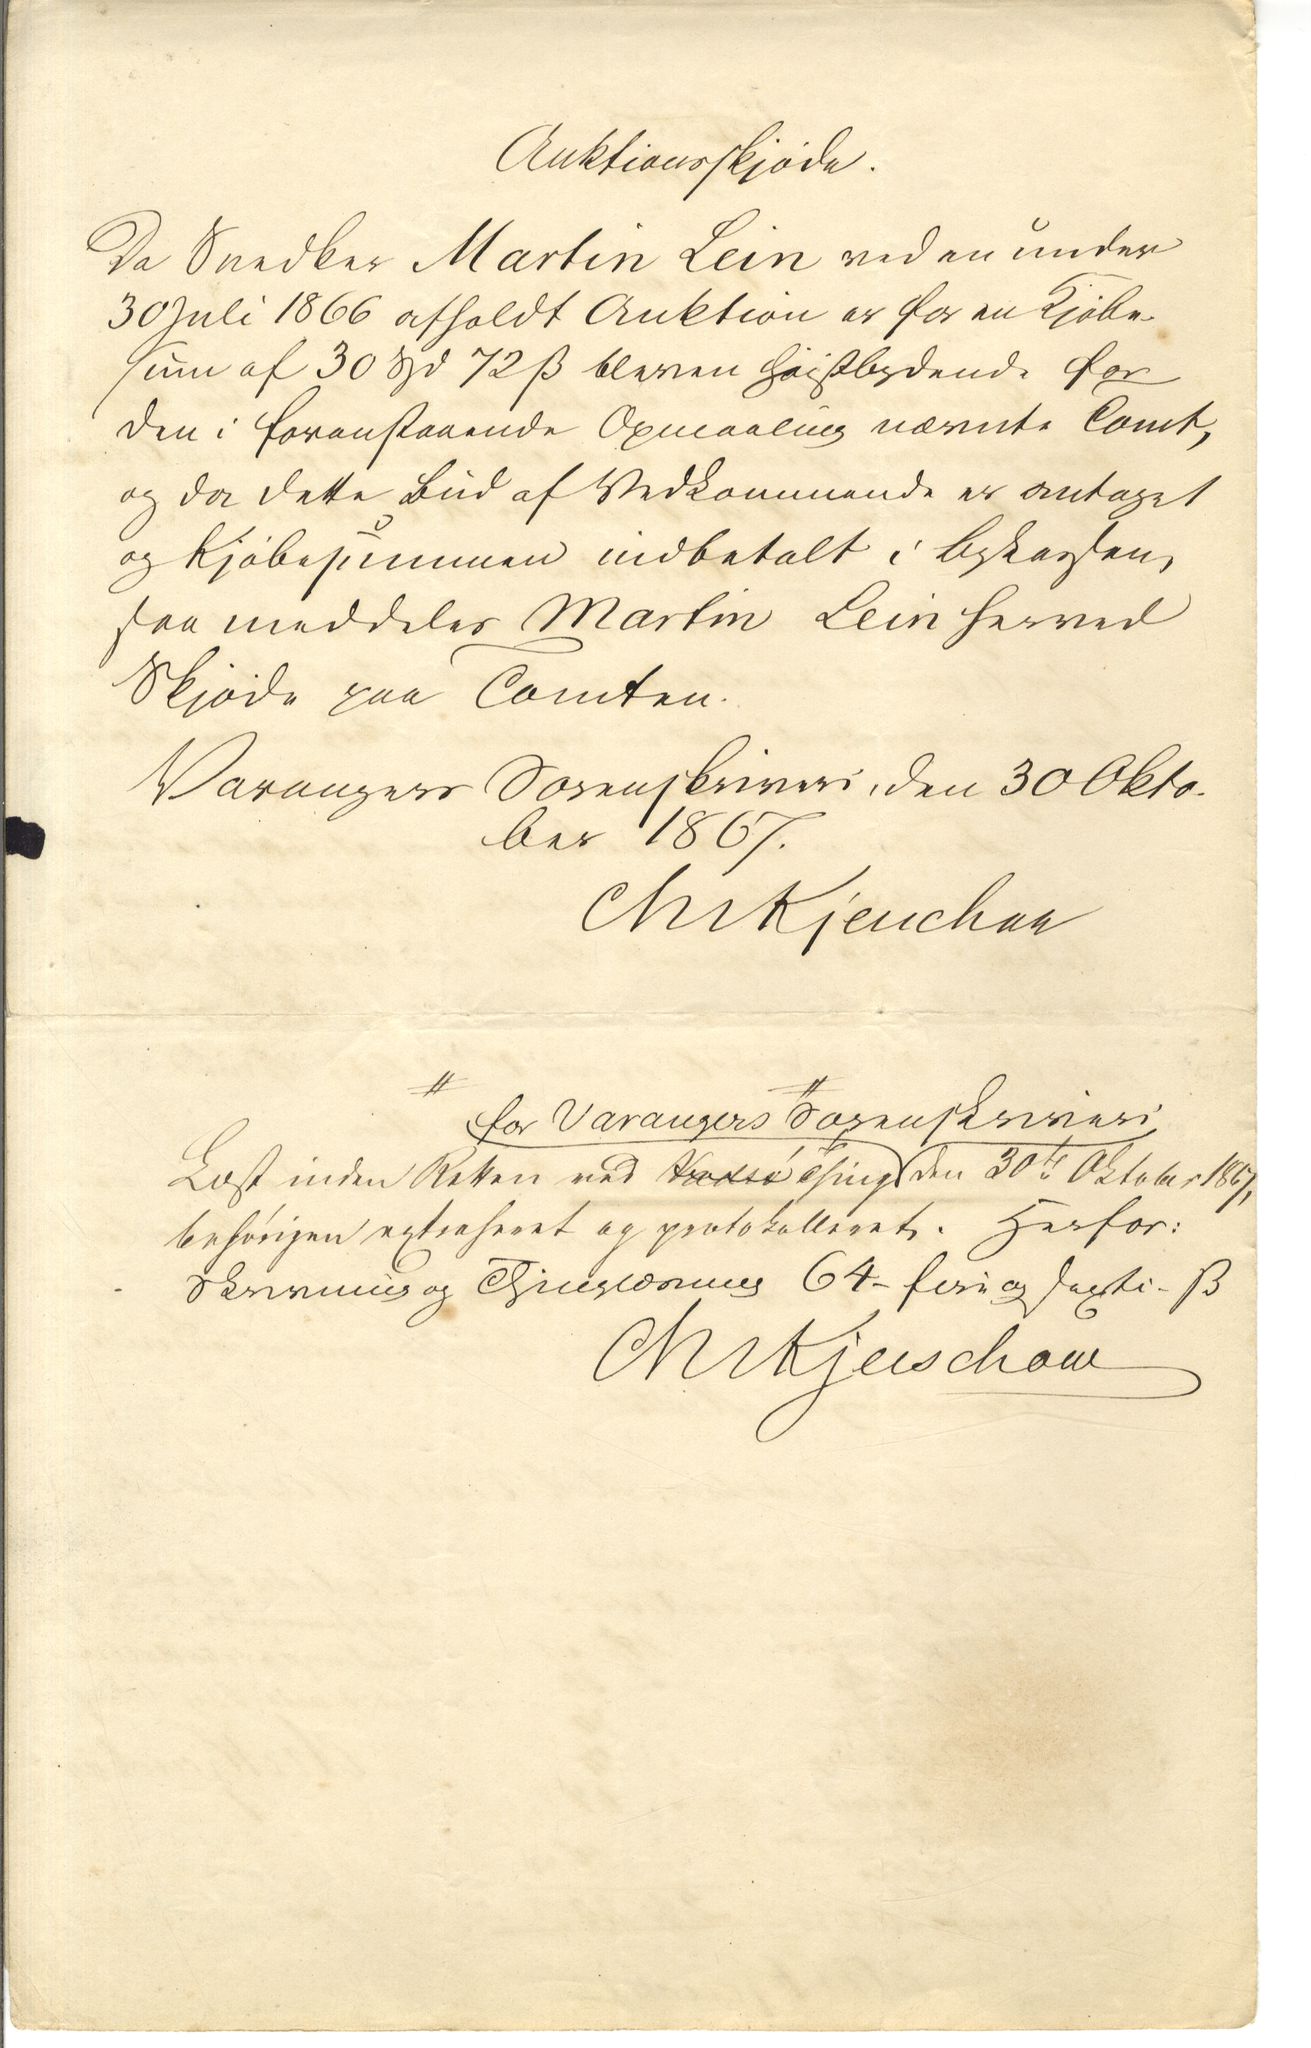 Auktionsskjøde.
Da Snedker Martin Lein ved en under
30 Juli 1866 afholdt Auktion er for en Kjøbe-
sum af 30 Spd 72 ß bleven høistbydende for
den i foranstaaende Opmaaling nævnte Tomt,
og da dette Bud af Vedkommende er antaget
og Kjøbesummen indbetalt i Bykassen,
saa meddeles Martin Lein herved
Skjøde paa Tomten.
Varangers Sorenskriveri, den 30 Okto-
ber 1867.
Chr Kjerschow
for Varangers Sorenskriveri
Læst inden Retten ved Vadsø Thing den 30te Oktober 1867,
behørigen extraheret og protokolleret. Herfor:
Skrivning og Thinglæsning 64 - fire og sexti - ß
Chr Kjerschow